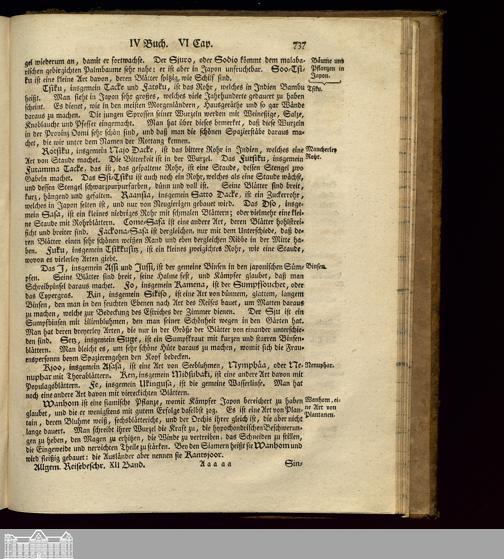 IV Buch. VI Cap. 737
gel wiederum an, damit er fortwachse. Der Sjuro, oder Sodio kömmt dem malaba-
rischen gebirgichten Palmbaume sehr nahe: er ist aber in Japon unfruchtbar. Soo-Tsi-
ku ist eine kleine Art davon, deren Blätter spitzig, wie Schilf sind.
Bäume und
Pflanzen in
Japon.
Tsiku, insgemein Tacke und Fatoku, ist das Rohr, welches in Indien Bambu
heißt. Man sieht in Japon sehr großes, welches viele Jahrhunderte gedauert zu haben
scheint. Es dienet, wie in den meisten Morgenländern, Hausgeräthe und so gar Wände
daraus zu machen. Die jungen Sprossen seiner Wurzeln werden mit Weineßige, Salze,
Knoblauche und Pfeffer eingemacht. Man hat über dieses bemerket, daß diese Wurzeln
in der Provinz Domi sehr schön sind, und daß man die schönen Spazierstäbe daraus ma-
chet, die wir unter dem Namen der Rottang kennen.
Tsiku.
Rotsiku, insgemein Najo Dacke, ist das bittere Rohr in Indien, welches eine
Art von Staude machet. Die Bitterkeit ist in der Wurzel. Das Futsiku, insgemein
Futamma Tacke, das ist, das gespaltene Rohr, ist eine Staude, dessen Stengel zwo
Gabeln machet. Das Ssi-Tsiku ist auch noch ein Rohr, welches als eine Staude wächst,
und dessen Stengel schwarzpurpurfarben, dünn und voll ist. Seine Blätter sind breit,
kurz, hängend und gefalten. Kaansja, insgemein Satto Dacke, ist ein Zuckerrohr,
welches in Japon selten ist, und nur von Neugierigen gebauet wird. Das Djo, insge-
mein Sasa, ist ein kleines niedriges Rohr mit schmalen Blättern; oder vielmehr eine klei-
ne Staude mit Rohrblättern. Come-Sasa ist eine andere Art, deren Blätter hohlstrei-
ficht und breiter sind. Fackona-Sasa ist dergleichen, nur mit dem Unterschiede, daß de-
ren Blätter einen sehr schönen weißen Rand und eben dergleichen Ribbe in der Mitte ha-
ben. Fuku, insgemein Tsikkusin, ist ein kleines zweigichtes Rohr, wie eine Staude,
wovon es vielerley Arten giebt.
Mancherley
Rohr.
Das J, insgemein Assi und Jussi, ist der gemeine Binsen in den japonischen Süm-
pfen. Seine Blätter sind breit, seine Halme fest, und Kämpfer glaubet, daß man
Schreibpinsel daraus machet. Fo, insgemein Kamena, ist der Sumpfflouchet, oder
das Cypergras. Kin, insgemein Sikiso, ist eine Art von dünnem, glattem, langem
Binsen, den man in den feuchten Ebenen nach Art des Reises bauet, um Matten daraus
zu machen, welche zur Bedeckung des Estriches der Zimmer dienen. Der Sju ist ein
Sumpfbinsen mit lilienblumen, den man seiner Schönheit wegen in den Gärten hat.
Man hat deren dreyerley Arten, die nur in der Größe der Blätter von einander unterschie-
den sind. Sen, insgemein Suge, ist ein Sumpfkraut mit kurzen und starren Binsen-
blättern. Man bleicht es, um sehr schöne Hüte daraus zu machen, womit sich die Frau-
enspersonen beym Spazierengehen den Kopf bedecken.
Binsen.
Kjoo, insgemein Asasa, ist eine Art von Seeblumen, Nymphäa, oder Ne-
nuphar mit Thorablättern. Ken, insgemein Midsubuki, ist eine andere Art davon mit
Populblättern. Fe, insgemein Ukingusa, ist die gemeine Wasserlinse. Man hat
noch eine andere Art davon mit viereckichten Blättern.
Nenuphar.
Wanhom ist eine siamische Pflanze, womit Kämpfer Japon bereichert zu haben
glaubet, und die er wenigstens mit gutem Erfolge daselbst zog. Es ist eine Art von Plan-
tain, deren Blume weiß, sechsblättericht, und der Orchis ihrer gleich ist, die aber nicht
lange dauert. Man schreibt ihrer Wurzel die Kraft zu, die hypochondrischen Beschwerun-
gen zu heben, den Magen zu erhitzen, die Winde zu vertreiben, das Schneiden zu stillen,
die Eingeweide und nervichten Theile zu stärken. Bey den Siamern heißt sie Wanhom und
wird fleißig gebauet: die Ausländer aber nennen sie Kantsjoor.
Wanhom, ei-
ne Art von
Plantanen.
Allgem. Reisebeschr. XII Band. A a a a a Sin-